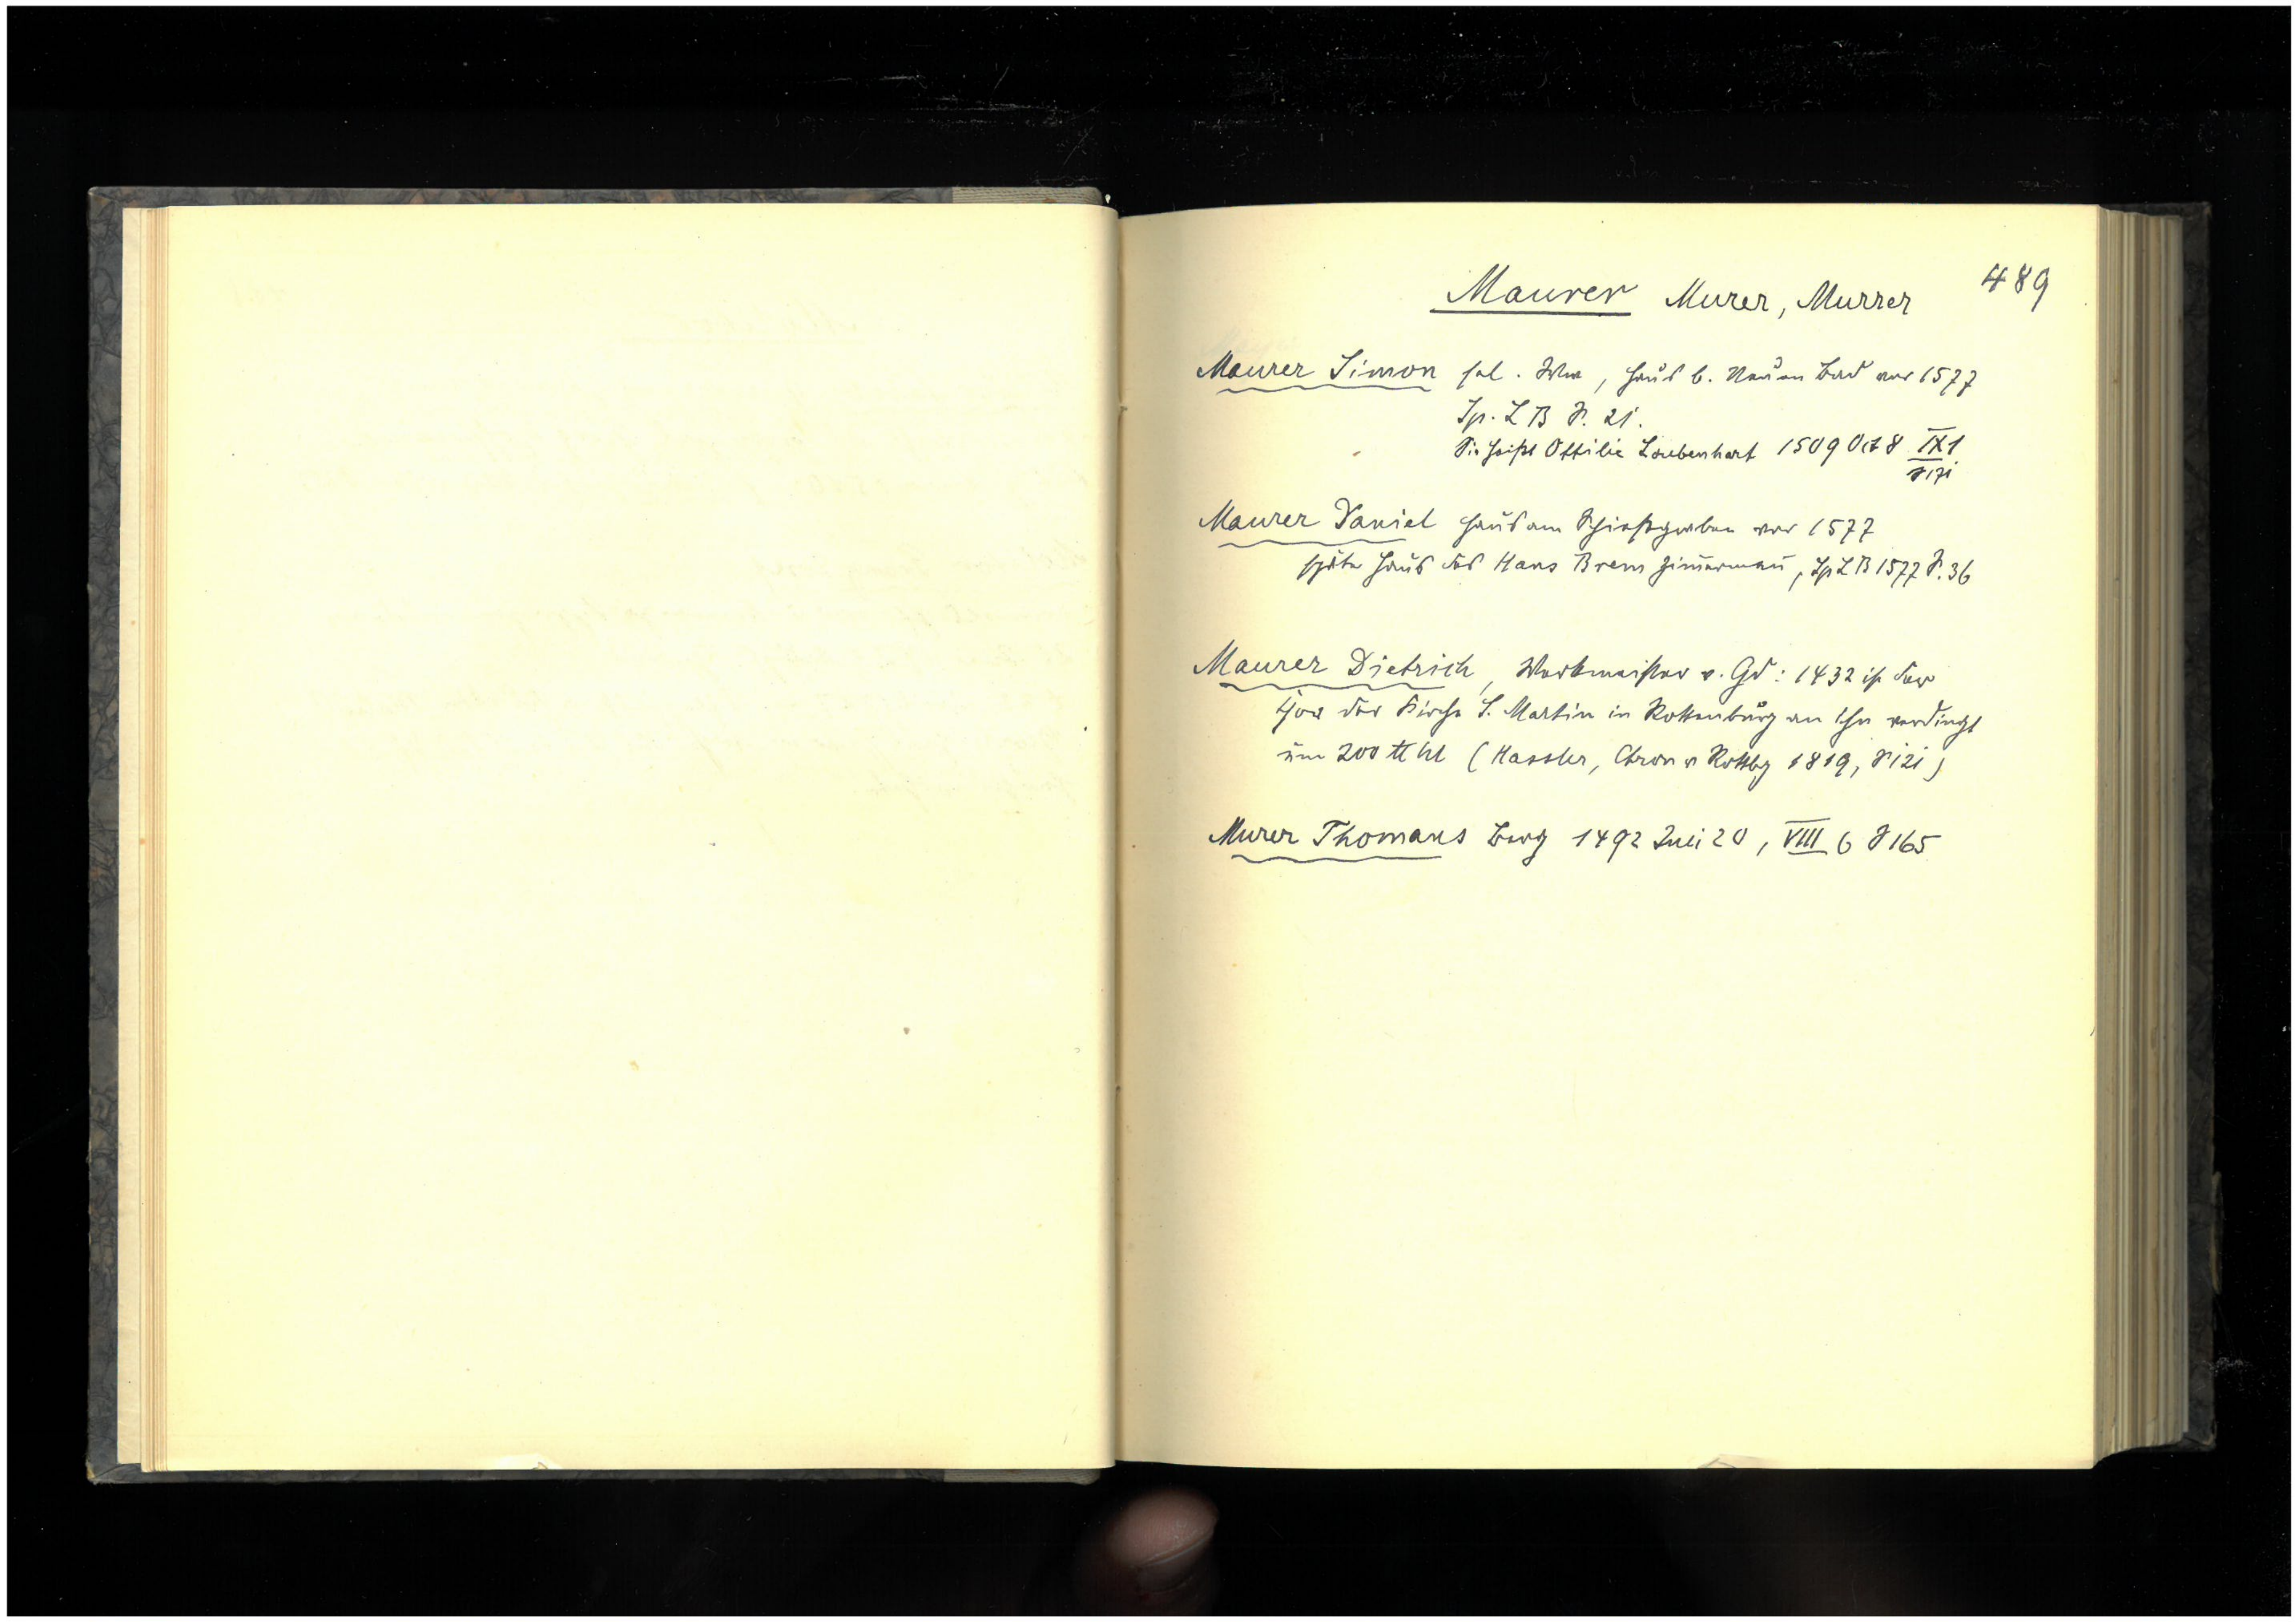 489
Maurer Murer, Murrer
Maurer Simon sel. Ww, Haus b. Neuen Bad vor 1577
Sp. L B S. 21.
Sie heißt Ottilie Laubenhart 1509 Oct 8 IX 1
S 171
Maurer Daniel Haus am Schießgraben vor 1577
später Haus des Hans Brem Zim̄erman̄, Sp L B 1577 S. 36
Maurer Dietrich, Werkmeister v. Gd: 1432 ist der
Chor der Kirche S. Martin in Rottenburg an ihn verdingt
um 200 ℔ hl (Hassler, Chron v Rottbg 1819, S 121)
Murer Thomans Berg 1492 Juli 20, VIII 6 S 165